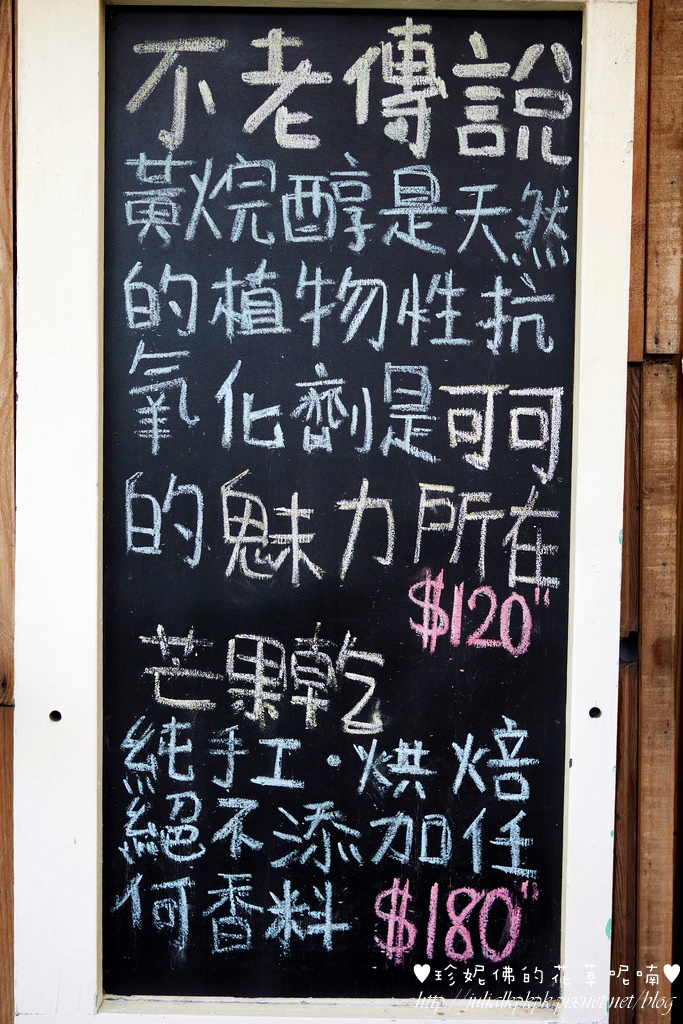 不老傳說
黃烷醇是天然
的植物性抗
氧化劑是可可
的魅力所在
$120"
芒果乾
純手工·烘焙
絕不添加任
何香料 $180"
♥珍妮佛的花草呢喃♥